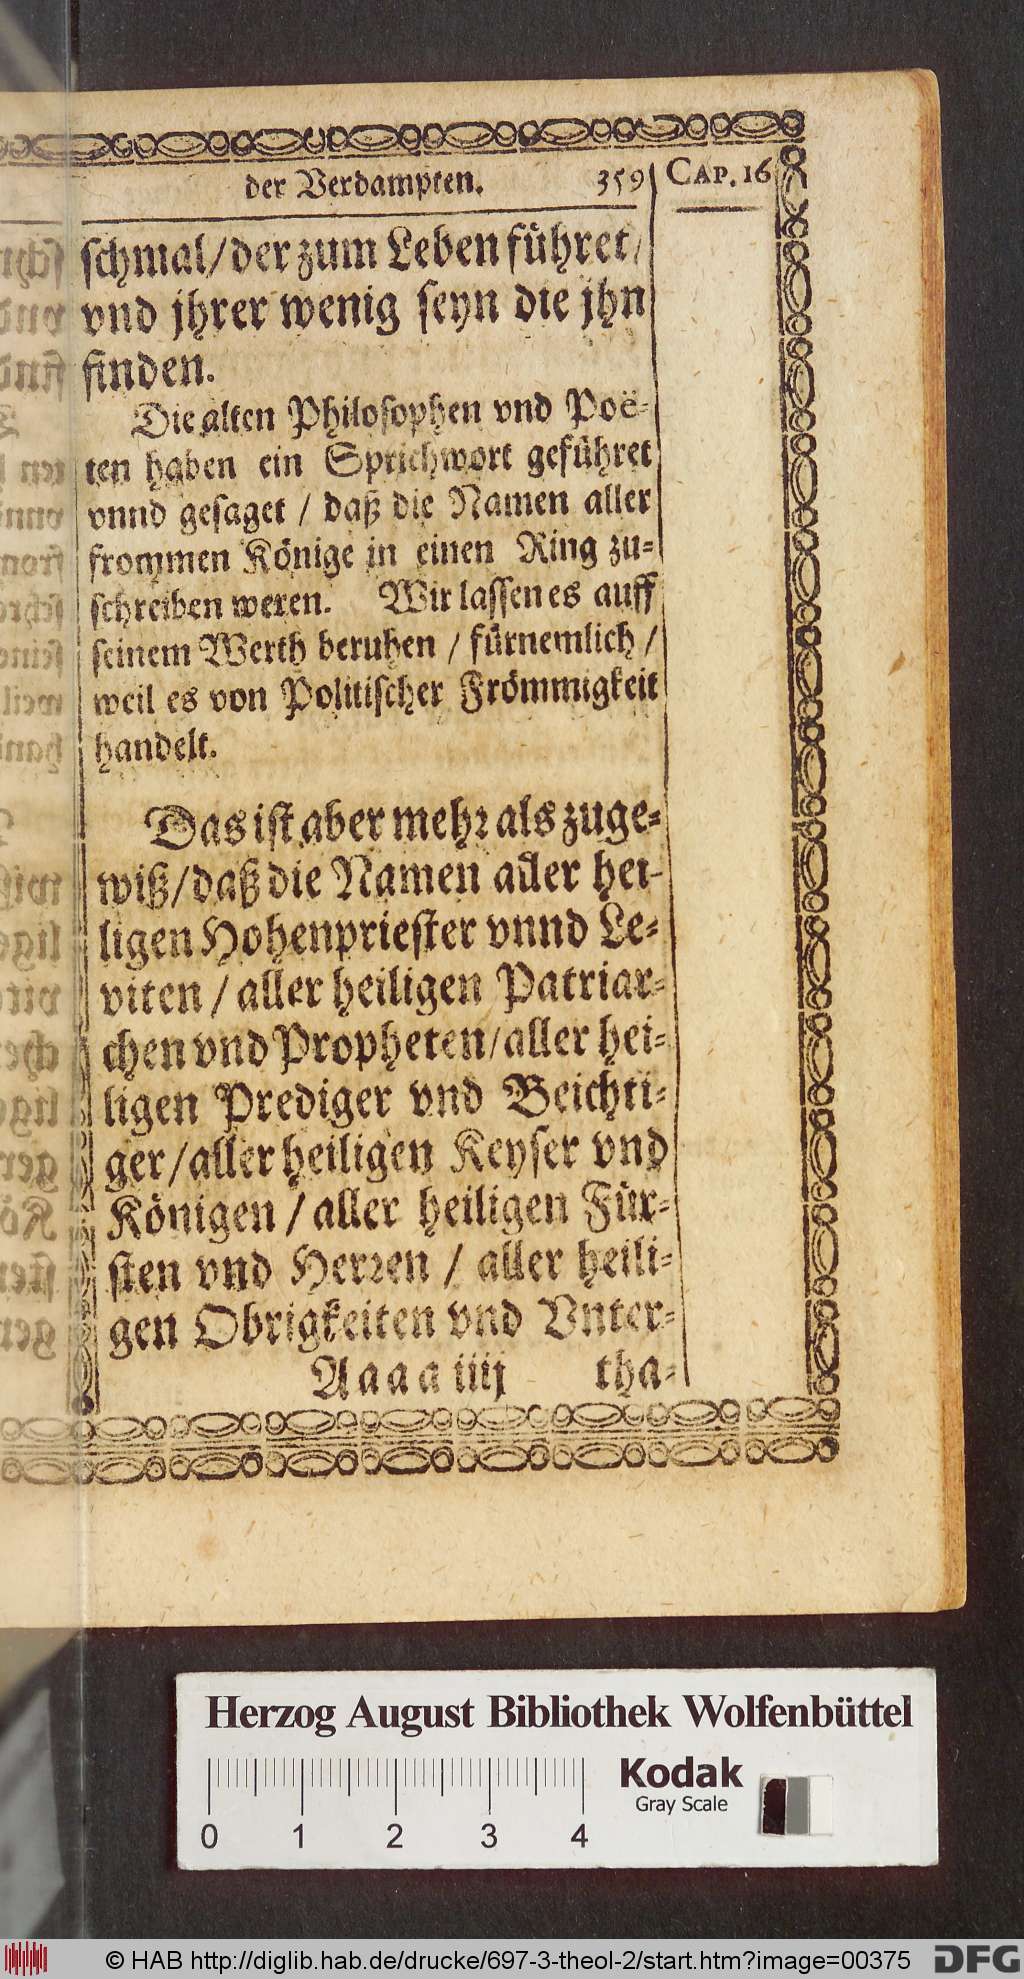 der Verdampten. 359 CAP. 16
schmal/der zum Leben führet/
vnd jhrer wenig seyn die jhn
finden.
Die alten Philosophen vnd Poë-
ten haben ein Sprichwort geführet
vnnd gesaget / daß die Namen aller
frommen Könige in einen Ring zu-
schreiben weren. Wir lassen es auff
seinem Werth beruhen / fürnemlich /
weil es von Politischer Frömmigkeit
handelt.
Das ist aber mehr als zuge-
wiß/daß die Namen aller hei-
ligen Hohenpriester vnnd Le-
viten / aller heiligen Patriar-
chen vnd Propheten/aller hei-
ligen Prediger vnd Beichti-
ger/aller heiligen Keyser vnd
Königen / aller heiligen Für-
sten vnd Herren / aller heili-
gen Obrigkeiten vnd Vnter-
Aaaa iiij tha-
Herzog August Bibliothek Wolfenbüttel
Kodak
Gray Scale
0 1 2 3 4
© HAB http://diglib.hab.de/drucke/697-3-theol-2/start.htm?image=00375 DFG